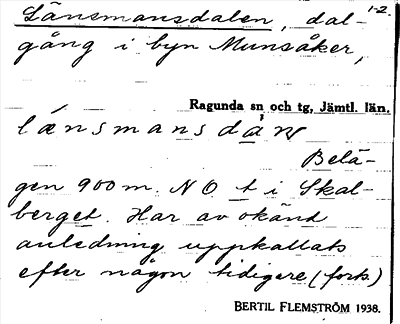 Länsmansdalen, dal- 1-2.
gång i byn Munsåker,
Ragunda sn och tg, Jämtl. län.
Belä-
gen 900 m. NO t i Skal-
berget. Har av okänd
anledning uppkallats
efter någon tidigare (forts.)
BERTIL FLEMSTRÖM 1938.